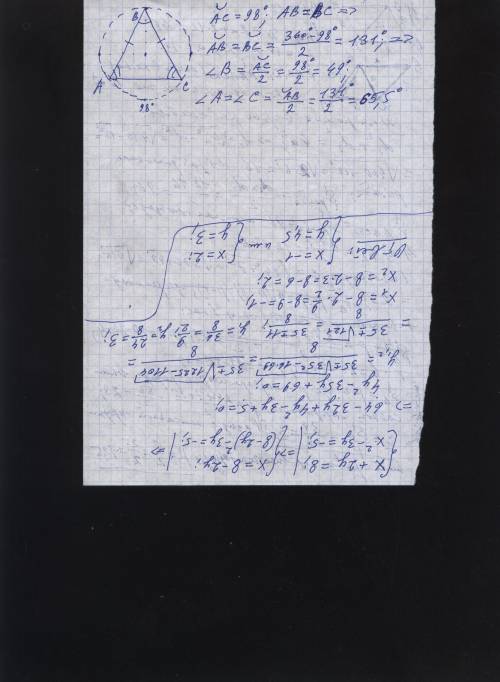 B
A
C
98°
ᴗAC = 98°; AB = BC =>
ᴗAB = ᴗBC = (360° - 98°)/2 = 131°; =>
∠B = ᴗAC/2 = 98°/2 = 49°;
∠A = ∠C = ᴗAB/2 = 131°/2 = 65,5°
{x + 2y = 8; x² - 3y = -5; | => {x = 8 - 2y; (8 - 2y)² - 3y = -5; | =>
=> 64 - 32y + 4y² - 3y + 5 = 0;
4y² - 35y + 69 = 0;
y₁,₂ = (35 ± √(35² - 16·69))/8 = (35 ± √(1225 - 1104))/8 =
= (35 ± √121)/8 = (35 ± 11)/8; y₁ = 36/8 = 9/2; y₂ = 24/8 = 3;
x₁ = 8 - 2·9/2 = 8 - 9 = -1;
x₂ = 8 - 2·3 = 8 - 6 = 2;
Ответ: {x = -1 y = 4,5 или {x = 2; y = 3;